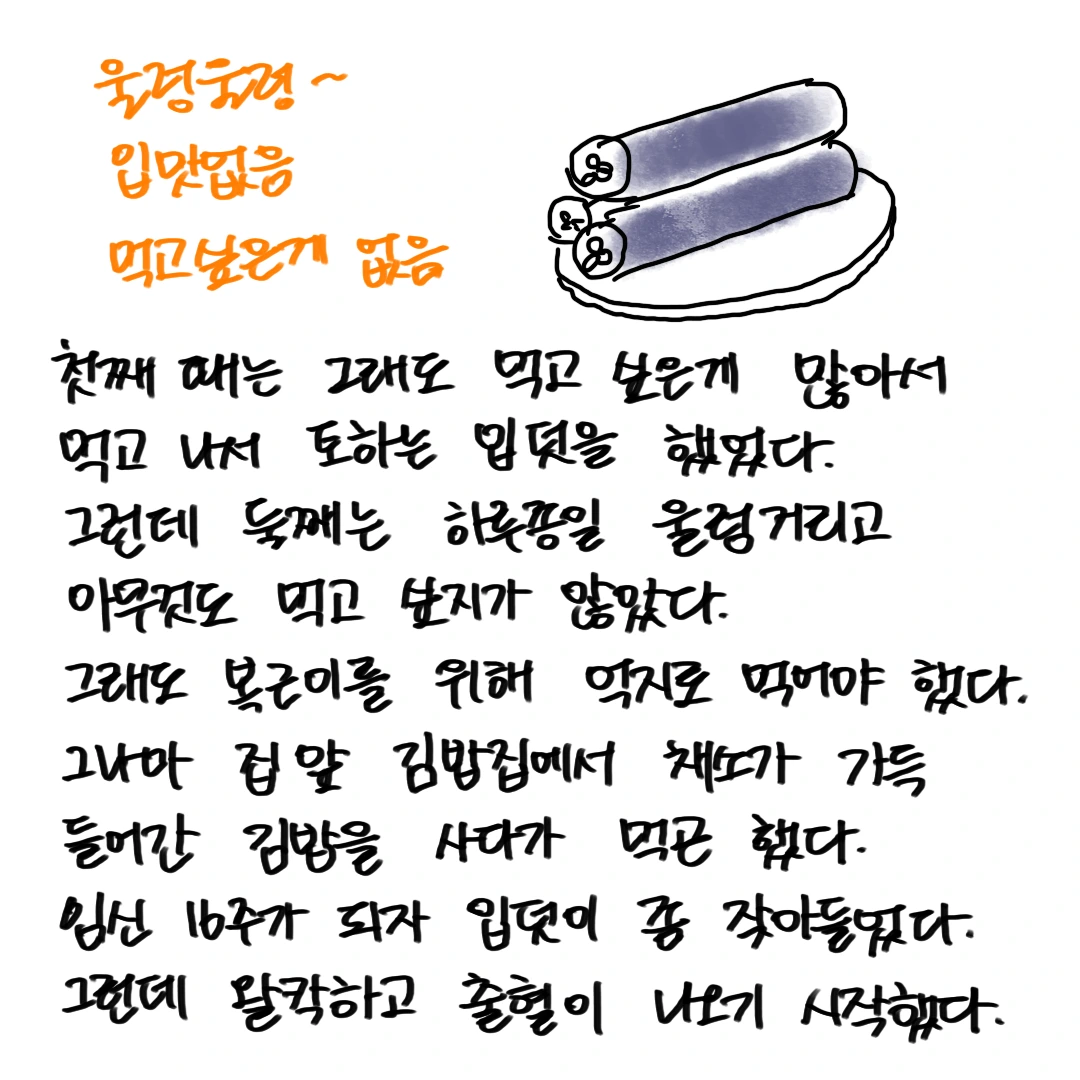 울렁울렁~
입맛없음
먹고싶은게 없음
첫째 때는 그래도 먹고 싶은게 많아서
먹고 나서 토하는 입덧을 했었다.
그런데 둑째는 하루종일 울렁거리고
아무것도 먹고 싶지가 않았다.
그래도 복근이를 위해 억지로 먹어야 했다.
그나마 집 앞 김밥집에서 채소가 가득
들어간 김밥을 사다가 먹곤 했다.
임신 16주가 되자 입덧이 좀 잦아들었다.
그런데 왈칵하고 출혈이 나오기 시작했다.